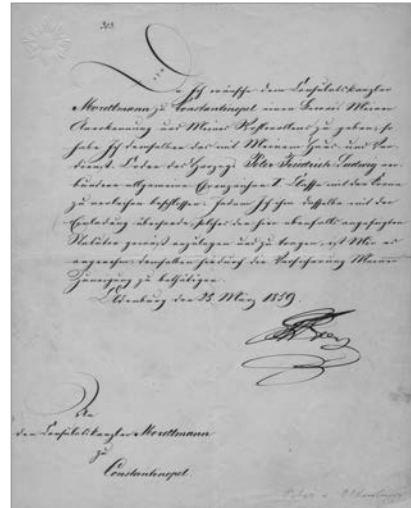 Da Ich wünsche dem Consulatskanzler
Mordtmann zu Constantinopel einen Beweis Meiner
Anerkennung und Meines Wohlwollens zu geben, so
habe Ich demselben das mit Meinem Haus- und Ver-
dienst-Orden des Herzogs Peter Friedrich Ludwig ver-
bundene allgemeine Ehrenzeichen I. Classe mit der Krone
zu verleihen beschlossen. Indem Ich ihm dasselbe mit der
Einladung übersende, solches den hier ebenfalls angefügten
Statuten gemäß anzulegen und zu tragen, ist Mir es
angenehm, demselben hierdurch die Versicherung Meiner
Zuneigung zu bethätigen.
Oldenburg den 23. März 1859.
An
den Consulatskanzler Mordtmann
zu
Constantinopel.